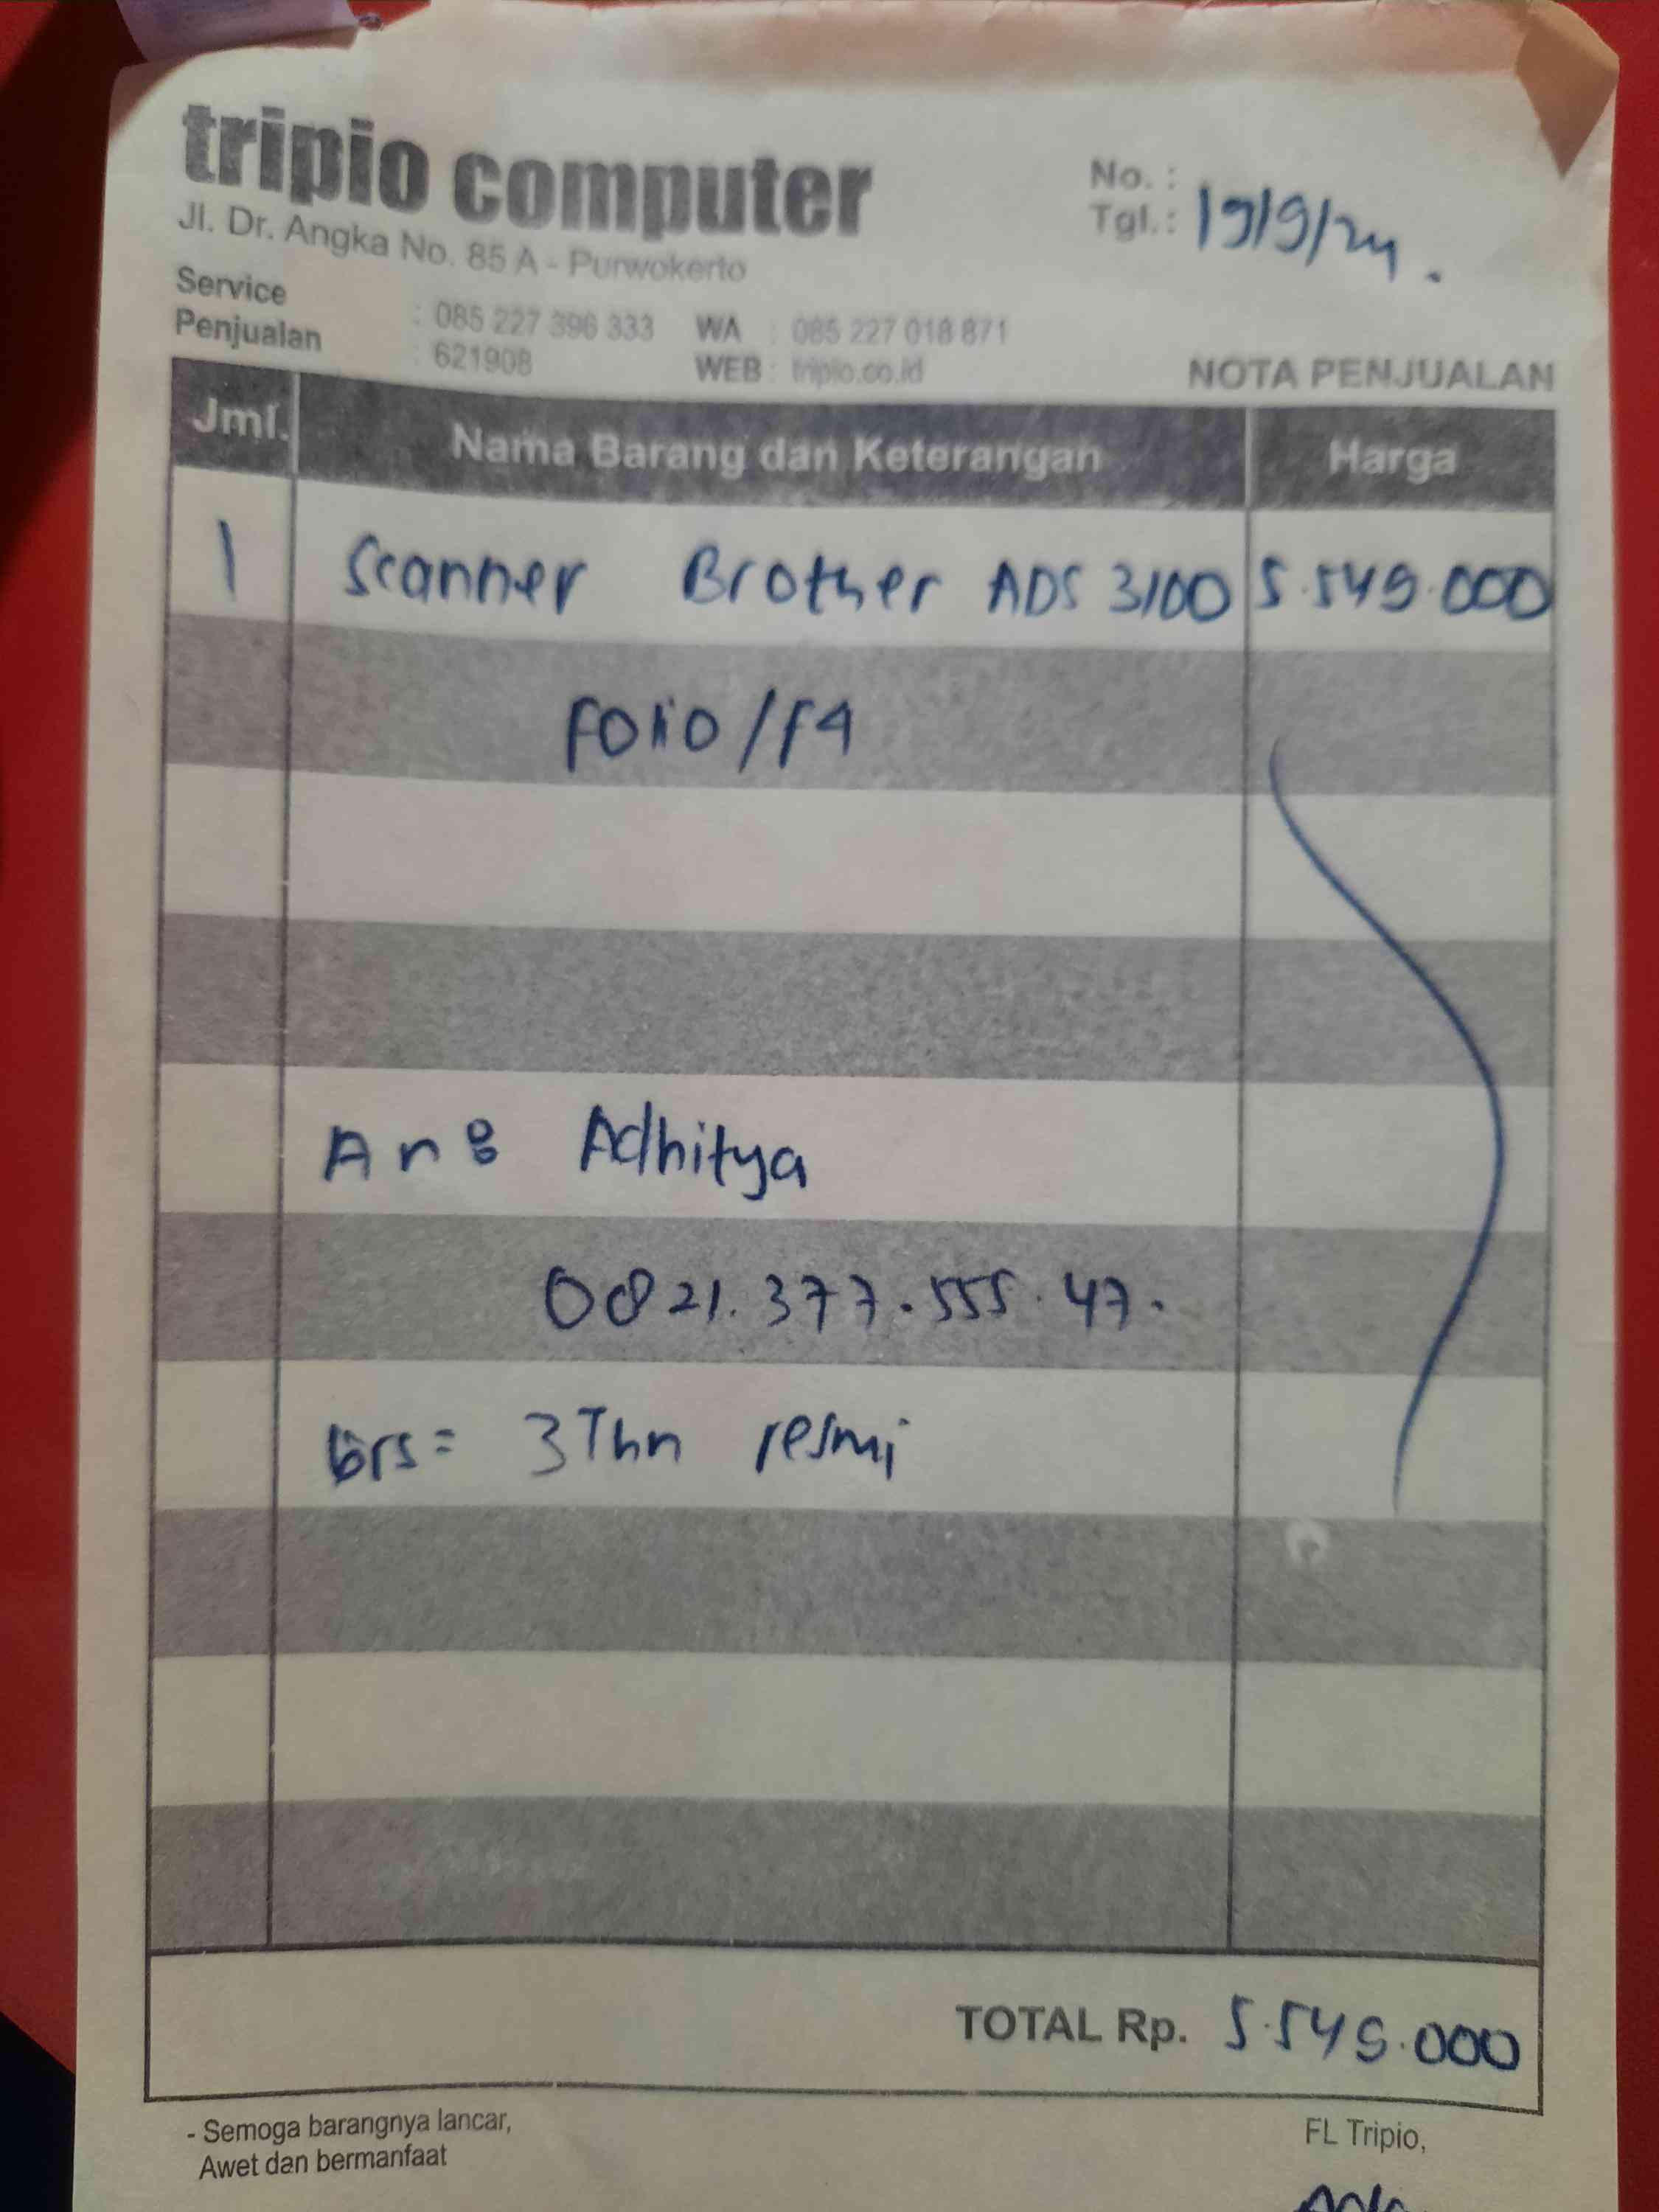 tripio computer
Jl. Dr. Angka No. 85 A - Purwokerto
No. :
Tgl. : 19/9/24.
Service : 085 227 396 333 WA : 085 227 018 871
Penjualan : 621908 WEB : tripio.co.id
NOTA PENJUALAN
Jml. Nama Barang dan Keterangan Harga
1 Scanner Brother ADS 3100 5.549.000
Folio/F4
Adhitya
0821.377.555.47.
Grs = 3 Thn resmi
TOTAL Rp. 5.549.000
- Semoga barangnya lancar,
Awet dan bermanfaat
FL Tripio,